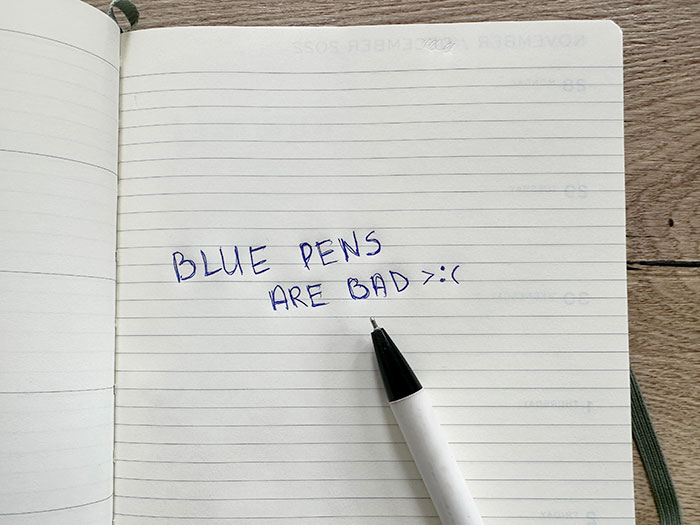 BLUE PENS
ARE BAD >:(